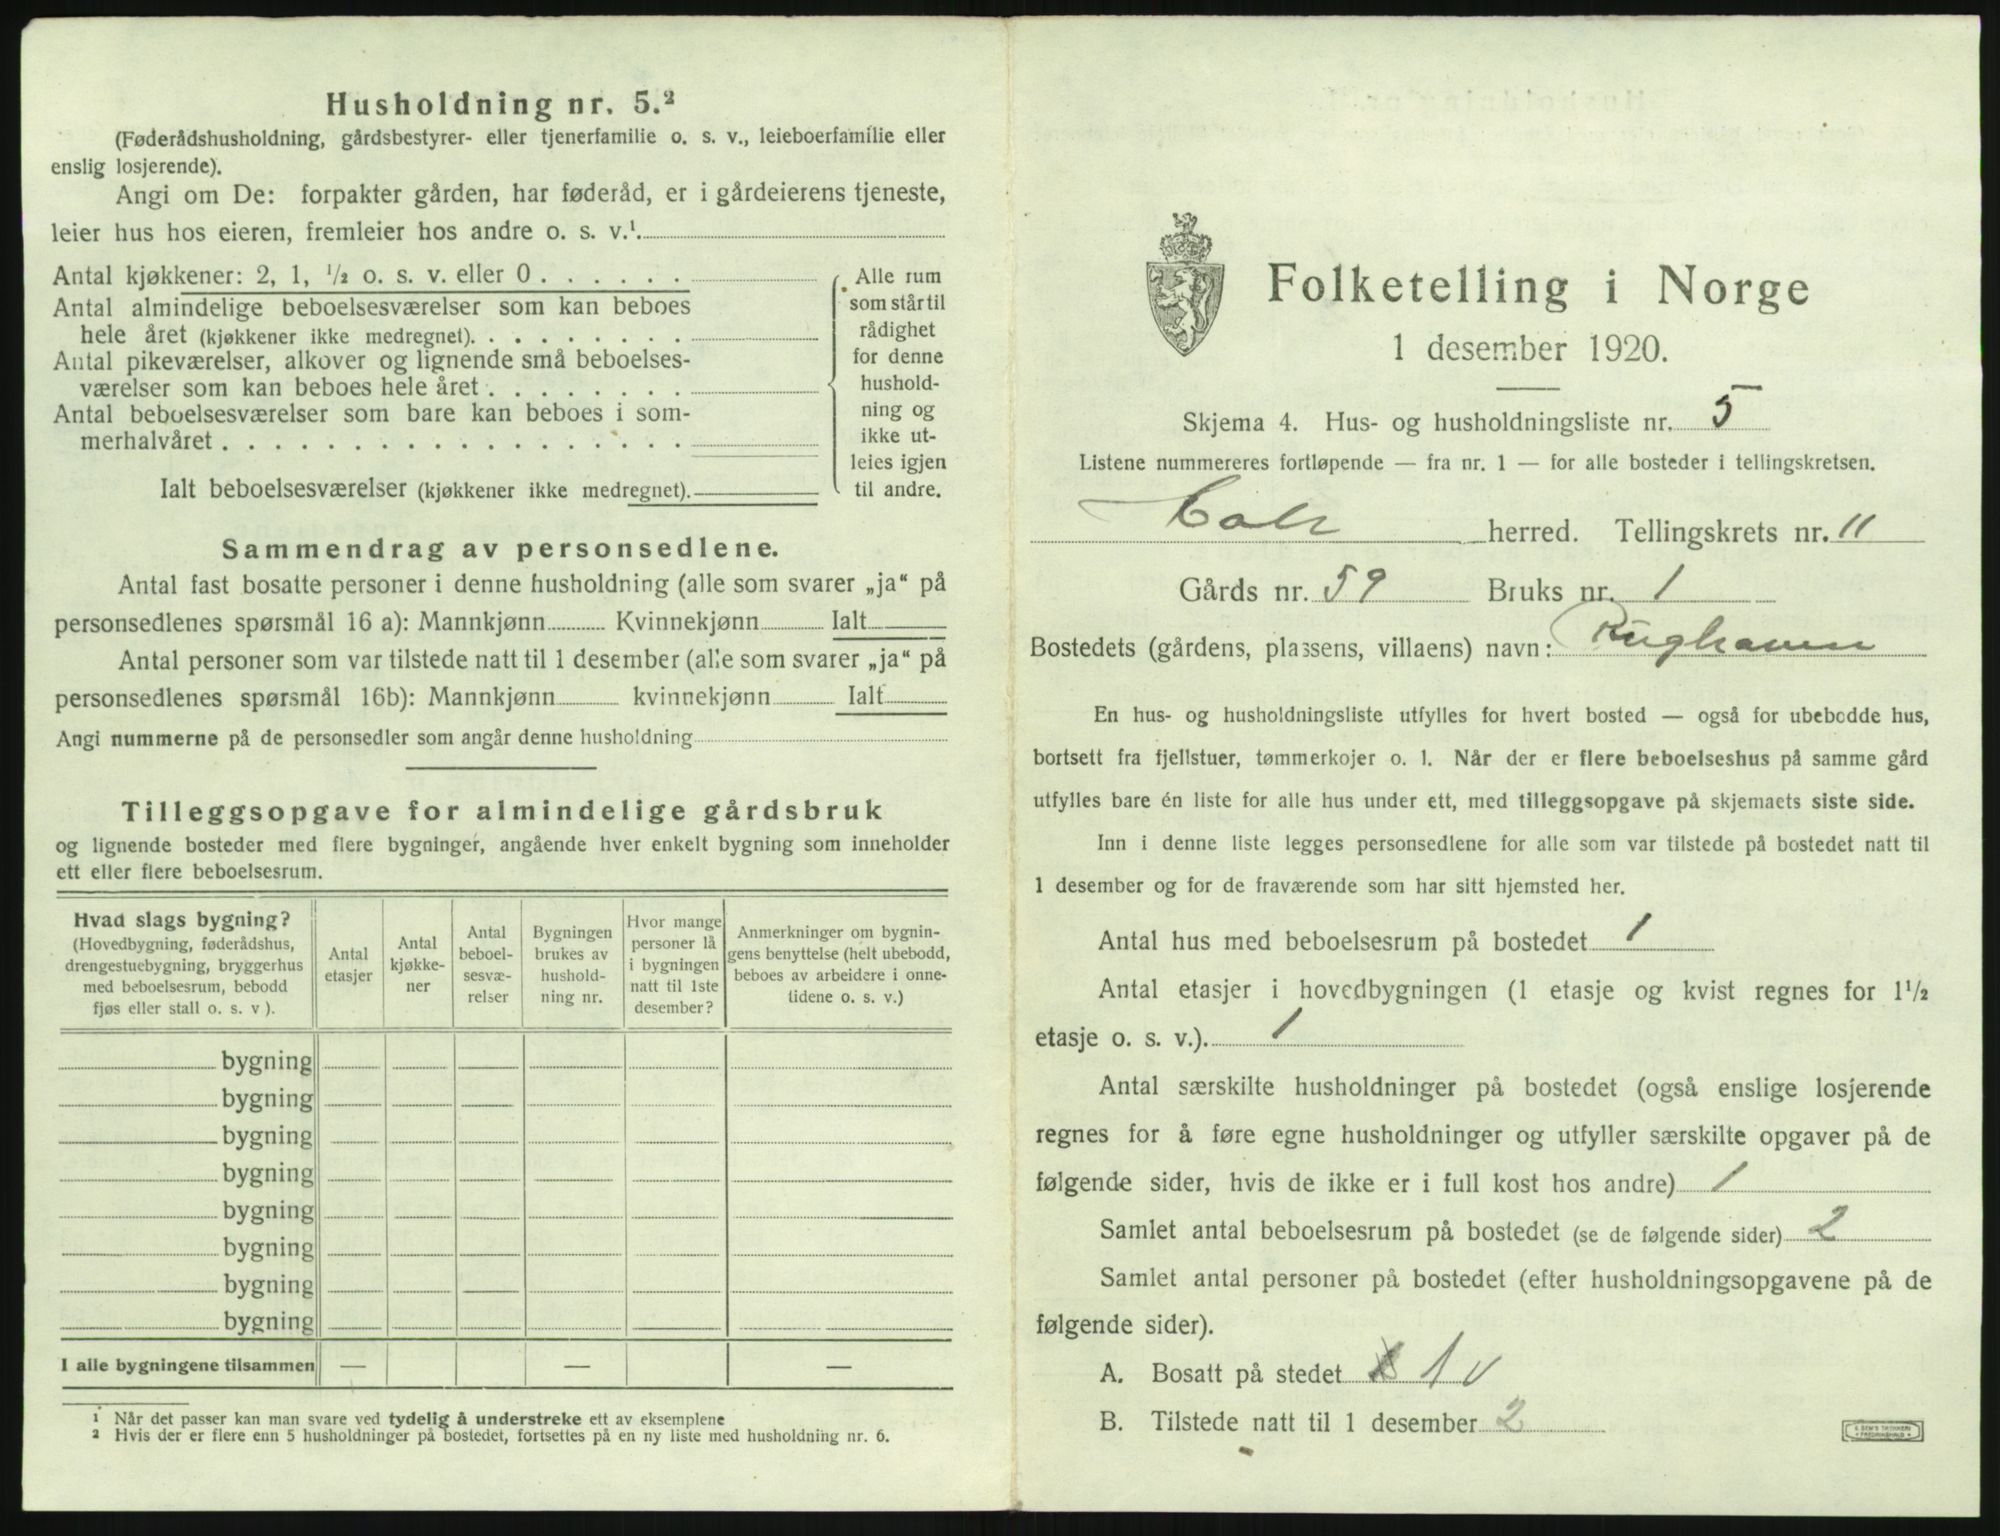 Husholdning nr. 5.²
(Føderådshusholdning, gårdsbestyrer- eller tjenerfamilie o. s. v., leieboerfamilie eller
enslig losjerende).
Angi om De: forpakter gården, har føderåd, er i gårdeierens tjeneste,
leier hus hos eieren, fremleier hos andre o. s. v.¹.
Antal kjøkkener: 2, 1, ½ o. s. v. eller 0
Antal almindelige beboelsesværelser som kan beboes
hele året (kjøkkener ikke medregnet).
Antal pikeværelser, alkover og lignende små beboelses-
værelser som kan beboes hele året
Antal beboelsesværelser som bare kan beboes i som-
merhalvåret
Ialt beboelsesværelser (kjøkkener ikke medregnet).
Alle rum
som står til
rådighet
for denne
hushold-
ning og
ikke ut-
leies igjen
til andre.
Sammendrag av personsedlene.
Antal fast bosatte personer i denne husholdning (alle som svarer „ja“ på
personsedlenes spørsmål 16 a): Mannkjønn Kvinnekjønn Ialt
Antal personer som var tilstede natt til 1 desember (alle som svarer „ja“ på
personsedlenes spørsmål 16b): Mannkjønn kvinnekjønn Ialt
Angi nummerne på de personsedler som angår denne husholdning
Tilleggsopgave for almindelige gårdsbruk
og lignende bosteder med flere bygninger, angående hver enkelt bygning som inneholder
ett eller flere beboelsesrum.
Hvad slags bygning?
(Hovedbygning, føderådshus,
drengestuebygning, bryggerhus
med beboelsesrum, bebodd
fjøs eller stall o. s. v ).
Antal
etasjer
Antal
kjøkke-
ner
Antal
beboel-
sesvæ-
relser
Bygningen
brukes av
hushold-
ning nr.
Hvor mange
personer lå
i bygningen
natt til 1ste
desember?
Anmerkninger om bygnin-
gens benyttelse (helt ubebodd,
beboes av arbeidere i onne-
tidene o. s. v.)
bygning
bygning
bygning
bygning
bygning
bygning
bygning
bygning
I alle bygningene tilsammen — — —
¹ Når det passer kan man svare ved tydelig å understreke ett av eksemplene
² Hvis der er flere enn 5 husholdninger på bostedet, fortsettes på en ny liste med husholdning nr. 6.
Folketelling i Norge
1 desember 1920.
Skjema 4. Hus- og husholdningsliste nr. 5
Listene nummereres fortløpende — fra nr. 1 — for alle bosteder i tellingskretsen.
herred. Tellingskrets nr. 11
Gårds nr. 59 Bruks nr. 1
Bostedets (gårdens, plassens, villaens) navn: Rughaven
En hus- og husholdningsliste utfylles for hvert bosted — også for ubebodde hus,
bortsett fra fjellstuer, tømmerkojer o. l. Når der er flere beboelseshus på samme gård
utfylles bare én liste for alle hus under ett, med tilleggsopgave på skjemaets siste side.
Inn i denne liste legges personsedlene for alle som var tilstede på bostedet natt til
1 desember og for de fraværende som har sitt hjemsted her.
Antal hus med beboelsesrum på bostedet 1
Antal etasjer i hovedbygningen (1 etasje og kvist regnes for 1½
etasje o. s. v.). 1
Antal særskilte husholdninger på bostedet (også enslige losjerende
regnes for å føre egne husholdninger og utfyller særskilte opgaver på de
følgende sider, hvis de ikke er i full kost hos andre) 1
Samlet antal beboelsesrum på bostedet (se de følgende sider) 2
Samlet antal personer på bostedet (efter husholdningsopgavene på de
følgende sider).
A. Bosatt på stedet 1 v
B. Tilstede natt til 1 desember 2